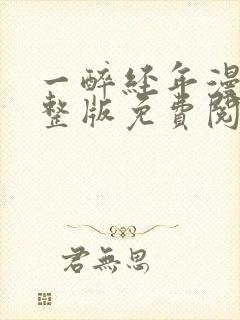 一醉经年漫
整版免費閱
君無思